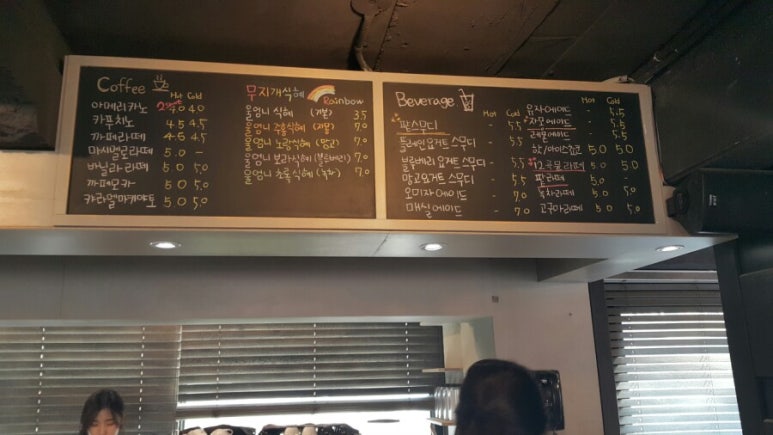 Coffee
Hot Cold
아메리카노 4.0 4.0
카푸치노 4.5 4.5
까페라떼 4.5 4.5
마시멜로라떼 5.0 -
바닐라 라떼 5.0 5.0
까페모카 5.0 5.0
카라멜마끼아또 5.0 5.0
무지개식혜 Rainbow
울엄니 식혜 (기본) 3.5
울엄니 주홍식혜 7.0
울엄니 노랑식혜 (망고) 7.0
울엄니 보라식혜 (블루베리) 7.0
울엄니 초록식혜 (녹차) 7.0
Beverage
Hot Cold
팥스무디 - 5.5
플레인요거트스무디 - 5.5
블루베리요거트스무디 - 5.5
망고요거트스무디 - 5.5
오미자에이드 - 7.0
매실에이드 - 7.0
Hot Cold
유자에이드 - 5.5
자몽에이드 - 5.5
레몬에이드 - 5.5
핫/아이스쵸코 5.0 5.0
12곡물라떼 5.0 5.0
팥라떼 5.0
녹차라떼 5.0 5.0
고구마라떼 5.0 5.0